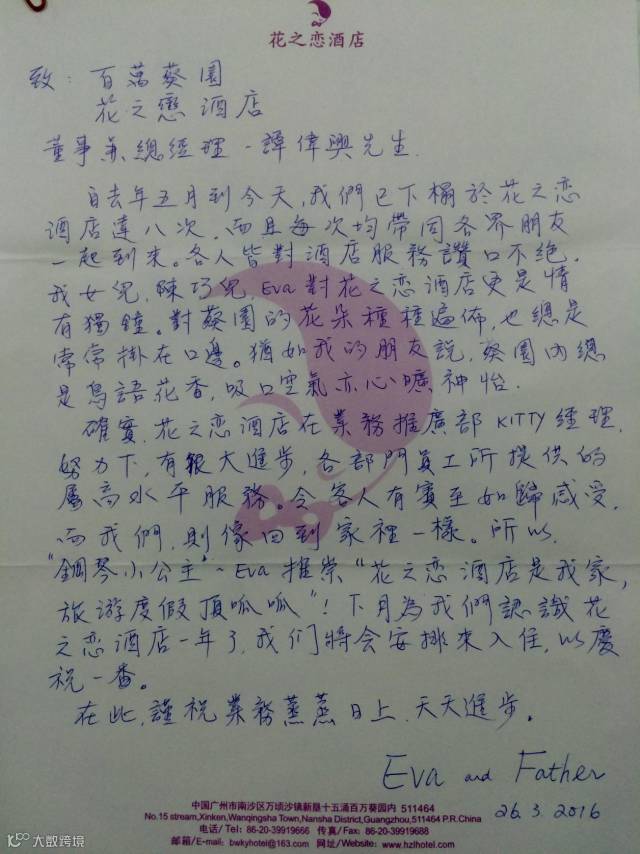 花之恋酒店
致：百萬葵園
花之戀酒店
董事兼總經理－譚偉興先生.
自去年五月到今天,我們已下榻於花之恋
酒店達八次.而且每次均帶同各界朋友
一起到來。各人皆對酒店服務讚口不绝.
我女兒.陳巧兒,Eva對花之恋酒店更是情
有獨鐘。對葵園的花朵種種遍佈,也總是
常常掛在口邊。猶如我的朋友說,葵園內總
是鳥語花香,吸口空氣亦心曠神怡.
確實,花之恋酒店在業務推廣部KITTY經理,
努力下,有很大進步,各部門員工所提供的
屬高水平服務。令客人有賓至如歸感受.
而我們,則像回到家裡一樣。所以,
"鋼琴小公主"~Eva推崇"花之恋酒店是我家,
旅游度假頂呱呱"!下月為我們認識花
之恋酒店一年了,我们將会安排來入住,以慶
祝一番。
在此,謹祝業務蒸蒸日上.天天進步。
Eva and Father
26.3.2016
中国广州市南沙区万顷沙镇新垦十五涌百万葵园内 511464
No.15 stream,Xinken,Wanqingsha Town,Nansha District,Guangzhou,511464 P.R.China
电话/Tel: 86-20-39919666 传真/Fax: 86-20-39919688
邮箱/E-mail: bwkyhotel@163.com 网址/Website: www.hzlhotel.com
大数跨境